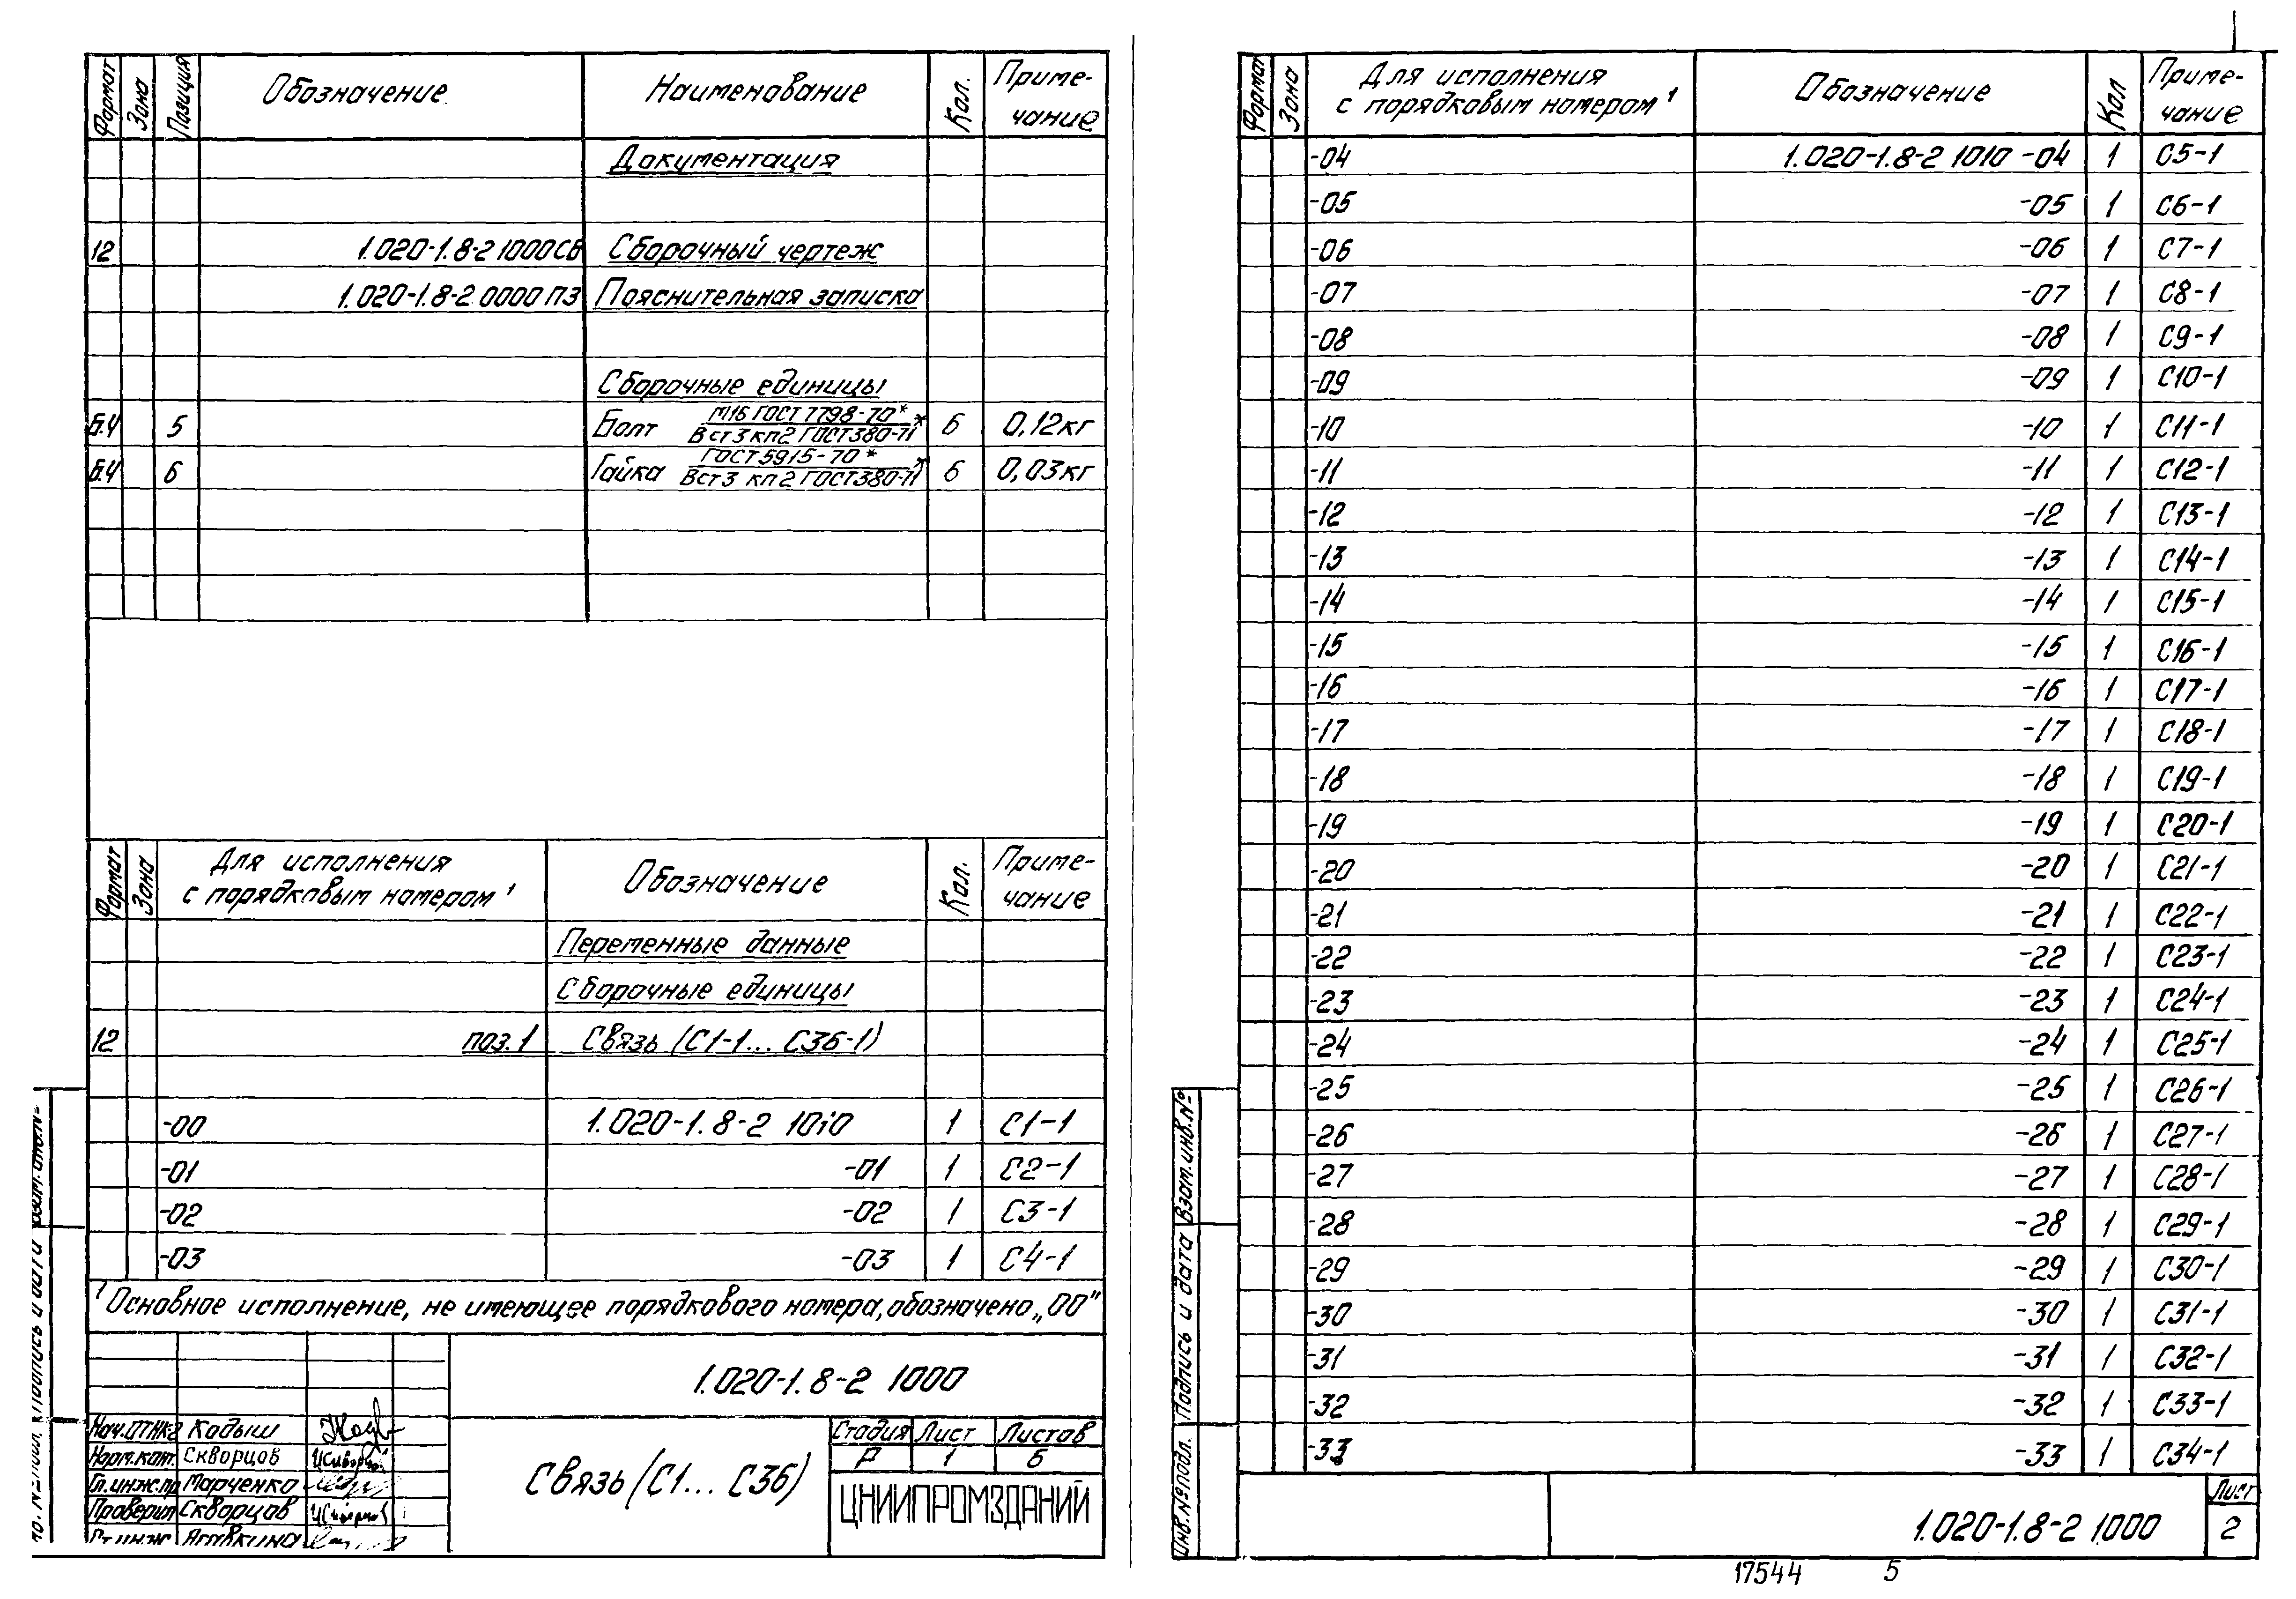 Формат Зона Позиция Обозначение Наименование Кол. Приме-
чание
Документация
12 1.020-1.8-2 1000СБ Сборочный чертеж
1.020-1.8-2 0000 ПЗ Пояснительная записка
Сборочные единицы
Б.4 5 Болт М16 ГОСТ 7798-70* 6 0,12кг
Вст3кп2 ГОСТ380-71*
Б4 6 Гайка ГОСТ5915-70* 6 0,03кг
Вст3 кп2 ГОСТ380-71*
Формат Зона Для исполнения
с порядковым номером 1 Обозначение Кол. Приме-
чание
Переменные данные
Сборочные единицы
12 поз.1 Связь (С1-1... С36-1)
-00 1.020-1.8-2 1010 1 С1-1
-01 -01 1 С2-1
-02 -02 1 С3-1
-03 -03 1 С4-1
1 Основное исполнение, не имеющее порядкового номера, обозначено „00"
1.020-1.8-2 1000
Нач.ОТНК-2 Кадыш
Норм.конт. Скворцов
Гл.инж.пр Марченко
Проверил Скворцов
Ст.инж Агавкина
Связь (С1... С36)
Стадия Лист Листов
Р 1 6
ЦНИИПРОМЗДАНИЙ
Подпись и дата
Формат Зона Для исполнения
с порядковым номером 1 Обозначение Кол Приме-
чание
-04 1.020-1.8-2 1010 -04 1 С5-1
-05 -05 1 С6-1
-06 -06 1 С7-1
-07 -07 1 С8-1
-08 -08 1 С9-1
-09 -09 1 С10-1
-10 -10 1 С11-1
-11 -11 1 С12-1
-12 -12 1 С13-1
-13 -13 1 С14-1
-14 -14 1 С15-1
-15 -15 1 С16-1
-16 -16 1 С17-1
-17 -17 1 С18-1
-18 -18 1 С19-1
-19 -19 1 С20-1
-20 -20 1 С21-1
-21 -21 1 С22-1
-22 -22 1 С23-1
-23 -23 1 С24-1
-24 -24 1 С25-1
-25 -25 1 С26-1
-26 -26 1 С27-1
-27 -27 1 С28-1
-28 -28 1 С29-1
-29 -29 1 С30-1
-30 -30 1 С31-1
-31 -31 1 С32-1
-32 -32 1 С33-1
-33 -33 1 С34-1
1.020-1.8-2 1000
Лист
2
Инв.№подл. Подпись и дата Взам.инв.№
17544 5